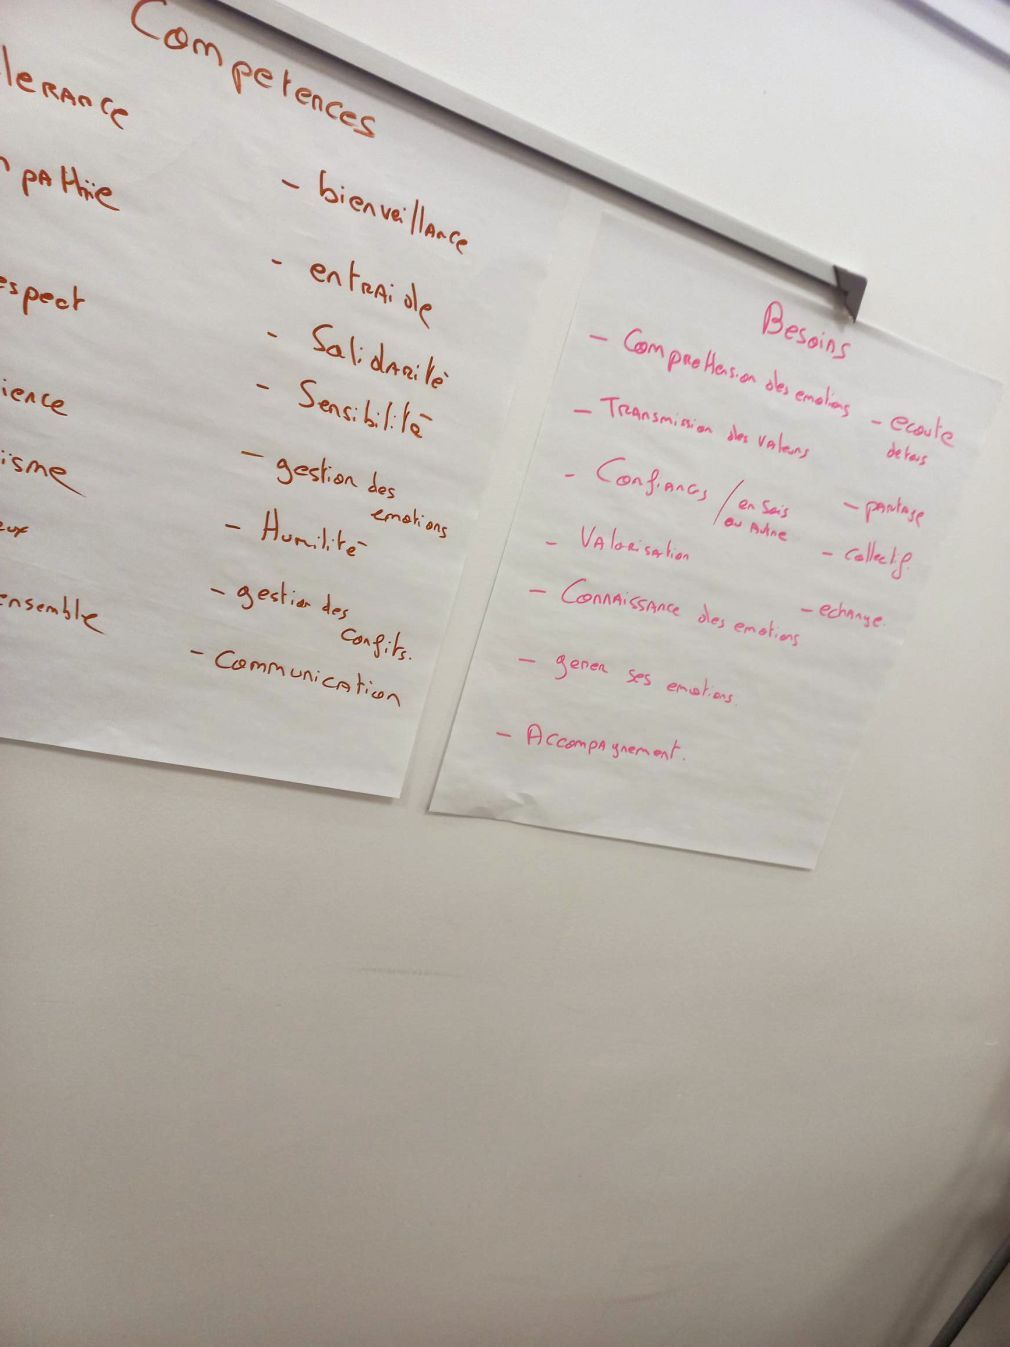 Competences
lerance
pathie
espect
ience
isme
eux
ensemble
- bienveillance
- entraide
- Solidarité
- Sensibilité
- gestion des
emotions
- Humilité
- gestion des
confits.
- Communication
Besoins
- Comprehension des emotions
- Transmission des valeurs
- Confiances / en Sois
ou Autre
- Valorisation
- Connaissance des emotions
- gerer ses emotions.
- Accompagnement.
- ecoute
de tous
- partage
- collectif.
- echange.